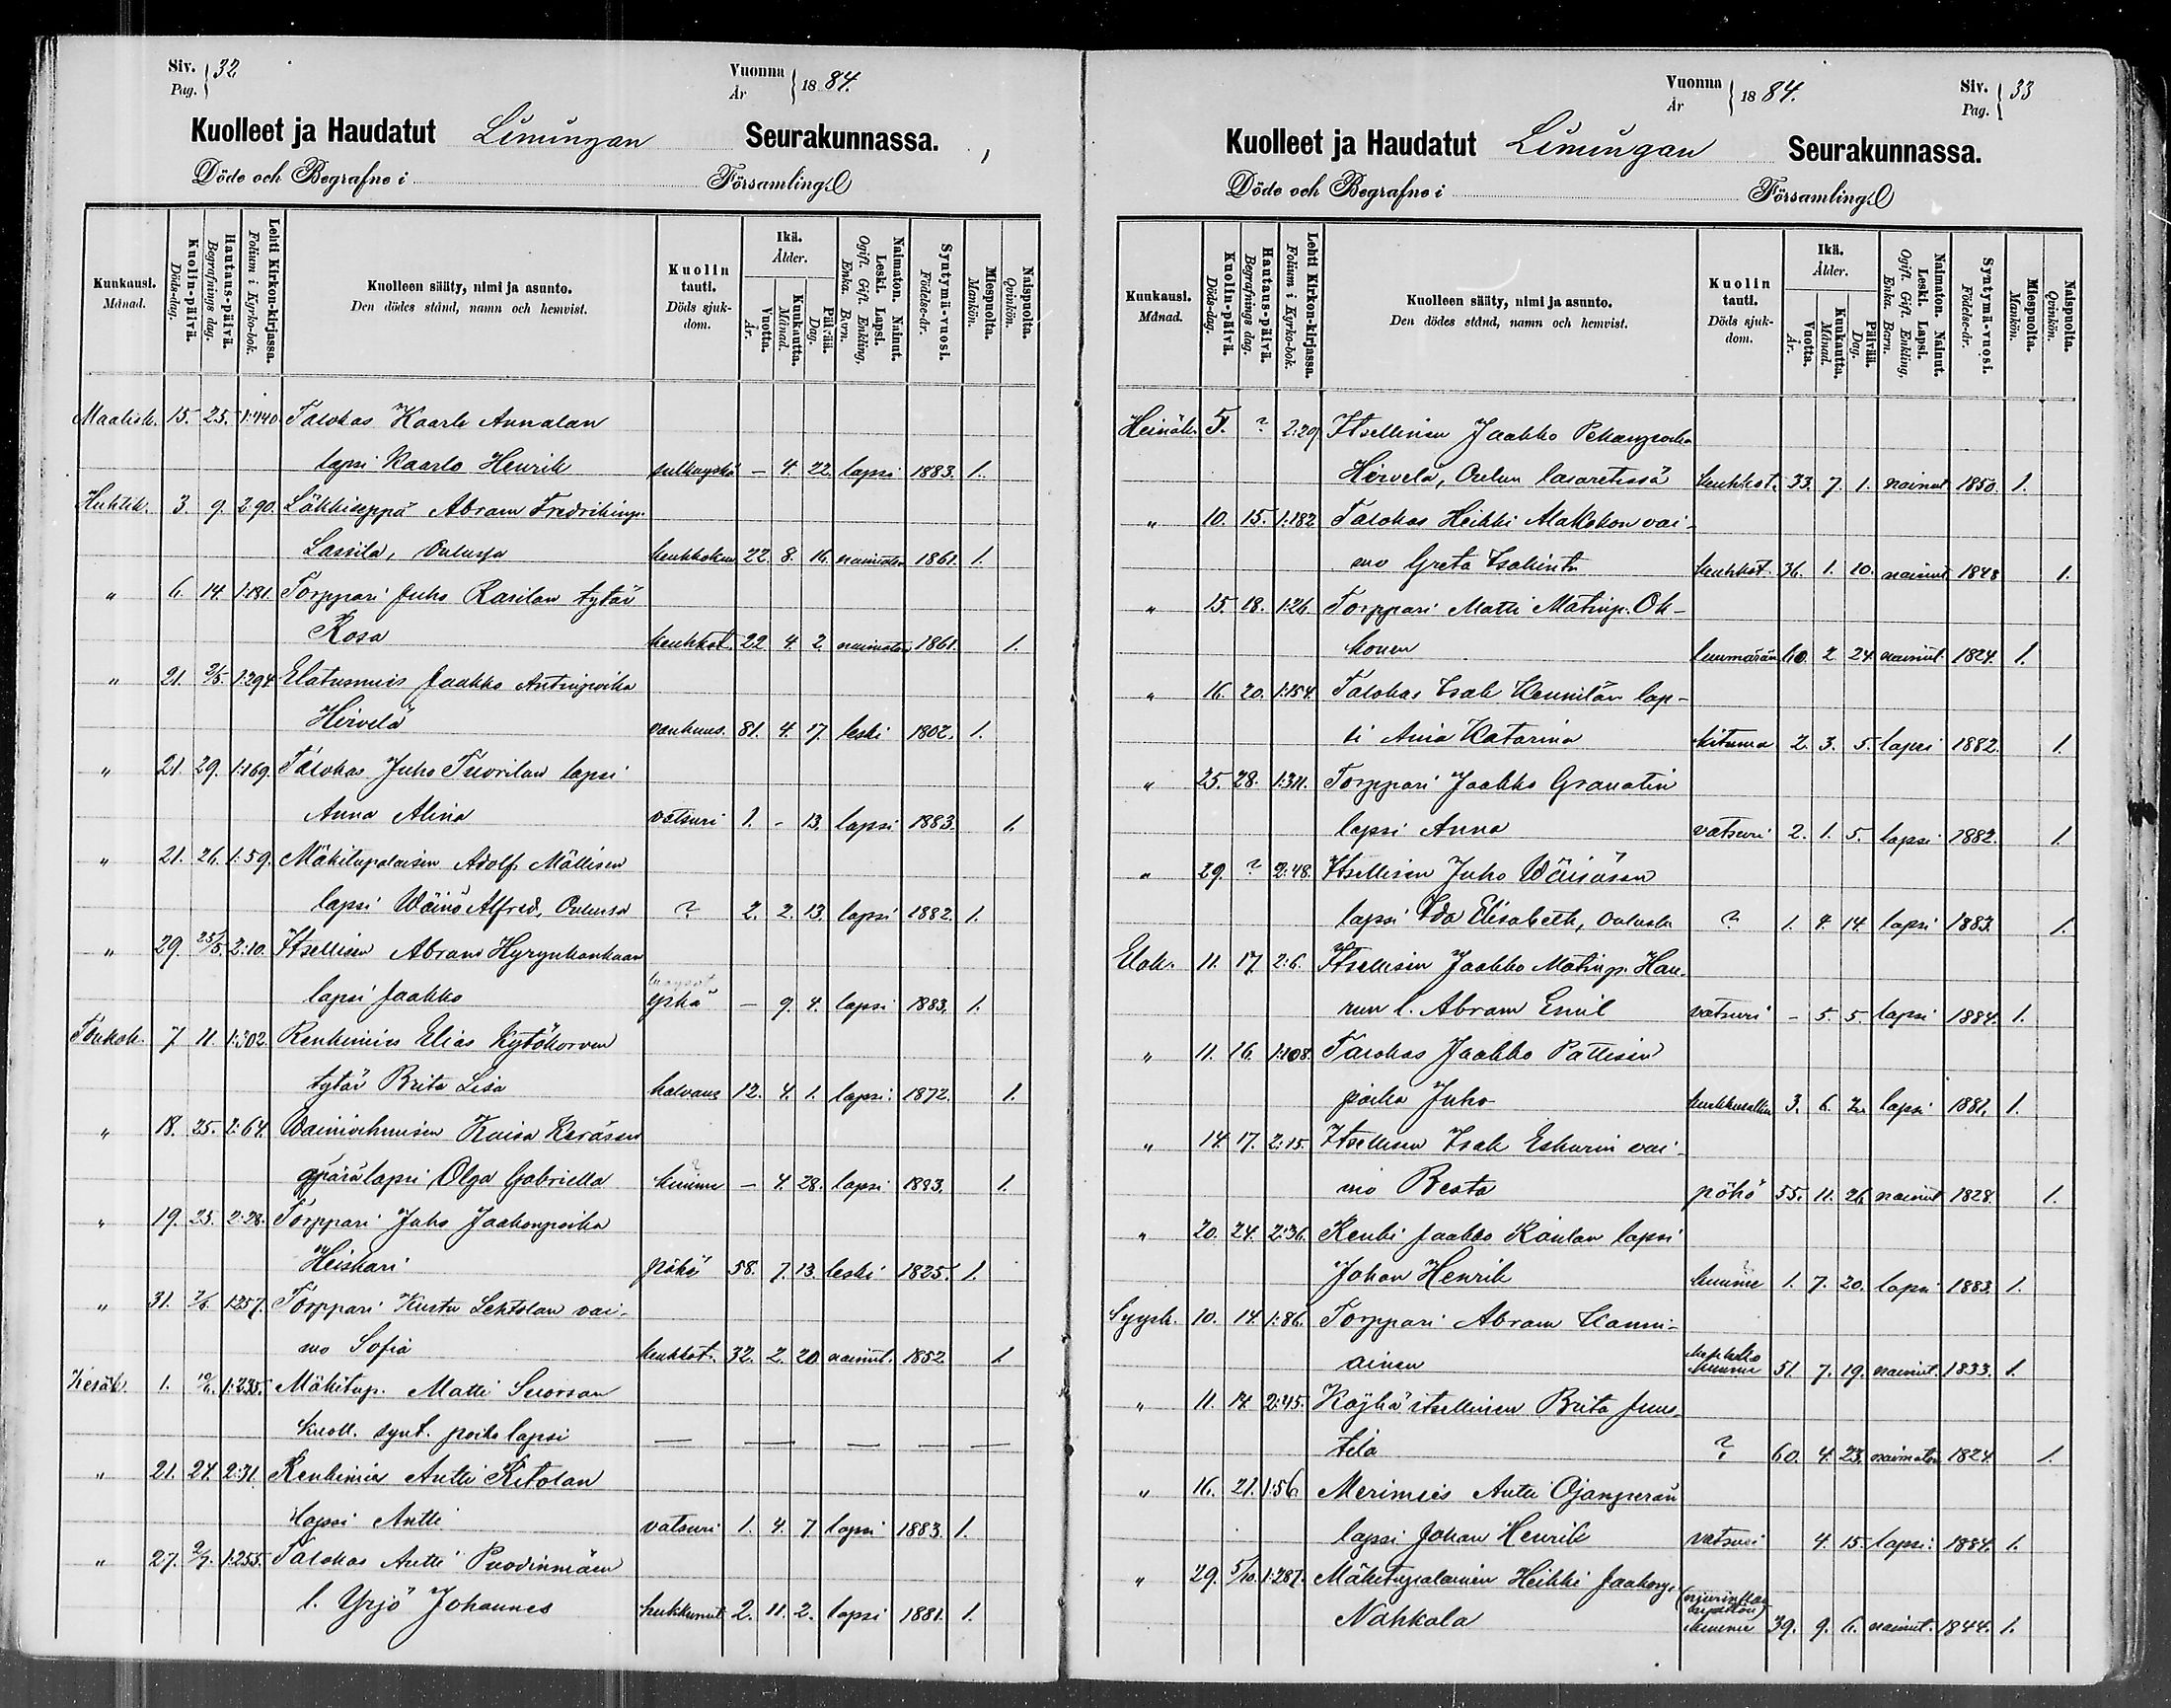 Siv. Pag. 32
Vuonna År 1884.
Kuolleet ja Haudatut Limingan Seurakunnassa.
Döde och Begrafne i Församling.
Kuukausi. Månad.
Kuolin-päivä. Döds-dag.
Hautaus-päivä. Begrafnings dag.
Lehti Kirkon-kirjassa. Folium i Kyrko-bok.
Kuolleen sääty, nimi ja asunto.
Den dödes stånd, namn och hemvist.
Kuolin tauti. Döds sjukdom.
Ikä. Ålder.
Vuotta. År.
Kuukautta. Månad.
Päivää. Dag.
Naimaton. Nainut. Leski. Lapsi.
Ogift. Gift. Enkling, Enka. Barn.
Syntymä-vuosi. Födelse-år.
Miespuolta. Mankön.
Naispuolta. Qvinkön.
Maalisk. 15. 25. 1:440 Talokas Kaarle Annalan
lapsi Kaarlo Henrik – 4. 22. lapsi 1883. 1.
Huhtik. 3. 9. 2:90. Läkkiseppä Abram Fredrikinp.
Lassila, Oulussa 22. 8. 16. naimaton 1861. 1.
" 6. 14. 1:181. Torppari Juho Rasilan tytär
Rosa keuhkot. 22 4. 2 naimaton 1861. 1.
" 21. 2/5. 1:294 Elatusmies Jaakko Antinpoika
Hirvelä vanhuus. 81. 4. 17. leski 1802. 1.
" 21. 29. 1:169. Talokas Juho Tuorilan lapsi
Anna Alina vatsuri 1. - 13. lapsi 1883. 1.
" 21. 26. 1:59. Mäkitupalaisen Adolf Mällisen
lapsi Wäinö Alfred, Oulussa ? 2. 2. 13. lapsi 1882. 1.
" 29. 25/5. 2:10. Itsellisen Abram Hyrynkankaan
lapsi Jaakko yskä – 9. 4. lapsi 1883. 1.
Toukok. 7. 11. 1:302. Renkimies Elias Kytökorven
tytär Brita Lisa halvaus 12. 4. 1. lapsi. 1872. 1.
" 18. 25. 2:64. Waimoihmisen Kaisa Keräsen
äpärälapsi Olga Gabriella kuume – 4. 28. lapsi 1883. 1.
" 19. 25. 2:28. Torppari Juho Jaakonpoika
Heiskari pöhö 58. 7. 13. leski 1825. 1.
" 31. 1257. Torppari Kustu Lehtolan vai-
mo Sofia keuhkot. 32. 2. 20. nainut. 1852 1.
Kesäk. 1. 10/6. 1:235. Mäkitup. Matti Suorsan
kuoll. synt. poika lapsi — — — — —
" 21. 24. 2:31. Renkimies Antti Kitolan
lapsi Antti vatsuri 1. 4. 7. lapsi 1883. 1.
" 27. 2/7. 1:255. Talokas Antti Puodinmäen
l. Yrjö Johannes 2. 11. 2. lapsi 1881. 1.
Vuonna År 1884.
Siv. Pag. 33
Kuolleet ja Haudatut Limingan Seurakunnassa.
Döde och Begrafne i Församling.
Kuukausi. Månad.
Kuolin-päivä. Döds-dag.
Hautaus-päivä. Begrafnings dag.
Lehti Kirkon-kirjassa. Folium i Kyrko-bok.
Kuolleen sääty, nimi ja asunto.
Den dödes stånd, namn och hemvist.
Kuolin tauti. Döds sjukdom.
Ikä. Ålder.
Vuotta. År.
Kuukautta. Månad.
Päivää. Dag.
Naimaton. Nainut. Leski. Lapsi.
Ogift. Gift. Enkling, Enka. Barn.
Syntymä-vuosi. Födelse-år.
Miespuolta. Mankön.
Naispuolta. Qvinkön.
Heinäk. 5. ? 2:29 Itsellinen Jaakko Pekanpoika
Hirvelä, Oulun lasaretissä keuhkot. 33. 7. 1. nainut 1850. 1.
" 10. 15. 1:182. Talokas Heikki Alakokon vai-
mo Greta Isakintr keuhkot. 36. 1. 10. nainut 1848 1.
" 15. 18. 1:26. Torppari Matti Matinp. Ok-
konen 60. 2 24 nainut 1824. 1.
" 16. 20. 1:154. Talokas Isak Kennilän lap-
si Anna Katarina kituma 2. 3. 5. lapsi 1882. 1.
" 25. 28. 1:311. Torppari Jaakko Granatin
lapsi Anna vatsuri 2. 1. 5. lapsi 1882. 1.
" 29. ? 2:48. Itsellisen Juho Wäisäsen
lapsi Ida Elisabeth, Oulusta ? 1. 4. 14. lapsi 1883. 1.
Elok. 11. 17. 2:6. Itsellisen Jaakko Matinp. Hau-
run l. Abram Emil vatsuri – 5. 5. lapsi 1884. 1.
" 11. 16. 1:108. Talokas Jaakko Pallisen
poika Juho 3. 6. 2. lapsi 1881. 1.
" 14. 17. 2:15. Itsellisen Isak Eskurin vai-
mo Beata pöhö 55. 11. 26 nainut 1828. 1.
" 20. 24. 2:36. Renki Jaakko Raulan lapsi
Johan Henrik kuume 1. 7. 20. lapsi 1883. 1.
Syysk. 10. 14. 1:86. Torppari Abram Kanni-
ainen kuume 51. 7. 19. nainut. 1833. 1.
" 11. 14. 2:45. Köyhä itsellinen Brita Juus-
tila ? 60. 4. 23. naimaton 1824. 1.
" 16. 21. 1:56. Merimies Antti Ojanperän
lapsi Johan Henrik vatsuri 4. 15. lapsi. 1884. 1.
" 29. 5/10. 1:287. Mäkitupalainen Heikki Jaakonp.
Nahkala kuume 39. 9. 6. nainut. 1844. 1.